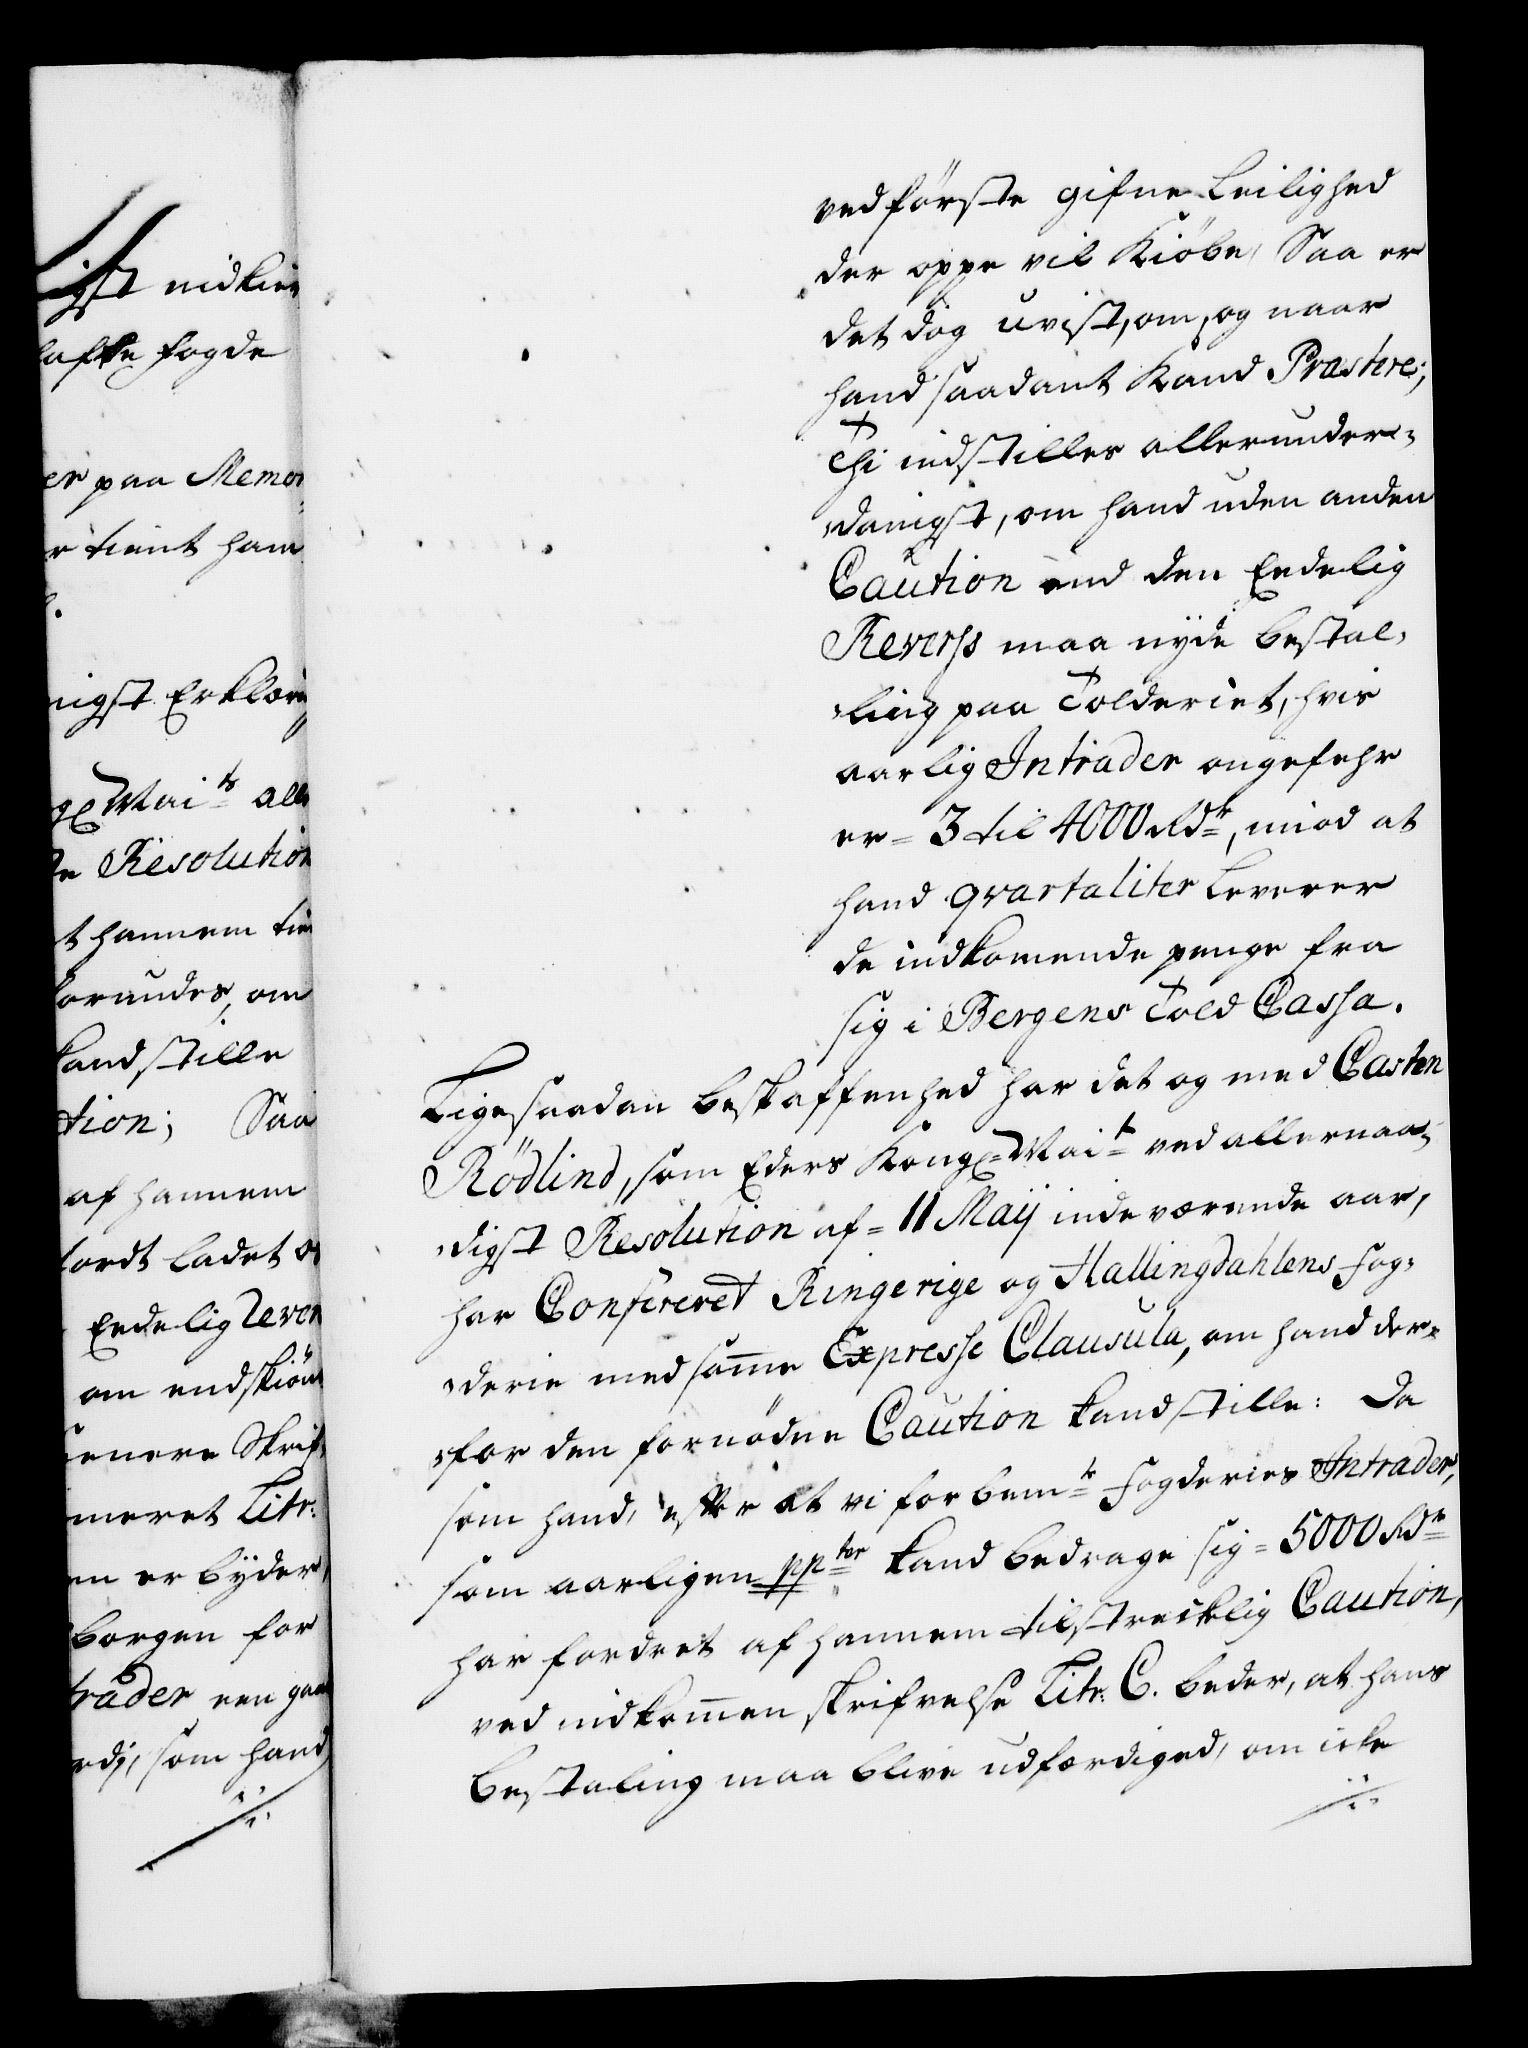 igst nidkier
lafte fogde
er paa Memor
r tient ham
nigst Erklæri
gl Maits alle
te Resolution
t hannem tie
forundes, om
kand stille
tion; Saa
af hannem
fordt ladet
Eedelig Rever
om endskiön
senere Skrif¬
meret Litr:
en erbyder,
borgen for
trader een gan
rdj, som hand
ved förste gifne Leilighed
der oppe vil Kiöbe, Saa er
det dog uvist, om, og naar
hand saadant Kand Præstere;
Thi indstilles allerunder¬
danigst, om hand uden anden
Caution end den Eedelig
Reverss maa nyde bestal¬
ling paa Tolderiet, hvis
aarlig Intrader ongefehr
er 3 til 4000 Rdr, mod at
hand qvartaliter Leverer
de indkomende penge fra
sig i Bergens Told Cassa.
Ligesaadan beskaffenhed har det og med Casten
Rödlind, som Eders Kongl Mait ved allernaa¬
digst Resolution af 11 Maij indeværende aar,
har Confereret Ringerige og Hallingdahlens fog¬
derie med samme Expresse Clausula, om hand der¬
for den fornödne Caution kand stille: Da
som hand, efter at vi for bemte Fogderies Intrader,
som aarligen ppter kand bedrage sig 5000 Rdr
har fordret af hannem tilstrecklig Caution,
ved indkommen skrifvelse Litr: C. beder, at hans
bestaling maa blive udfærdiged, om icke